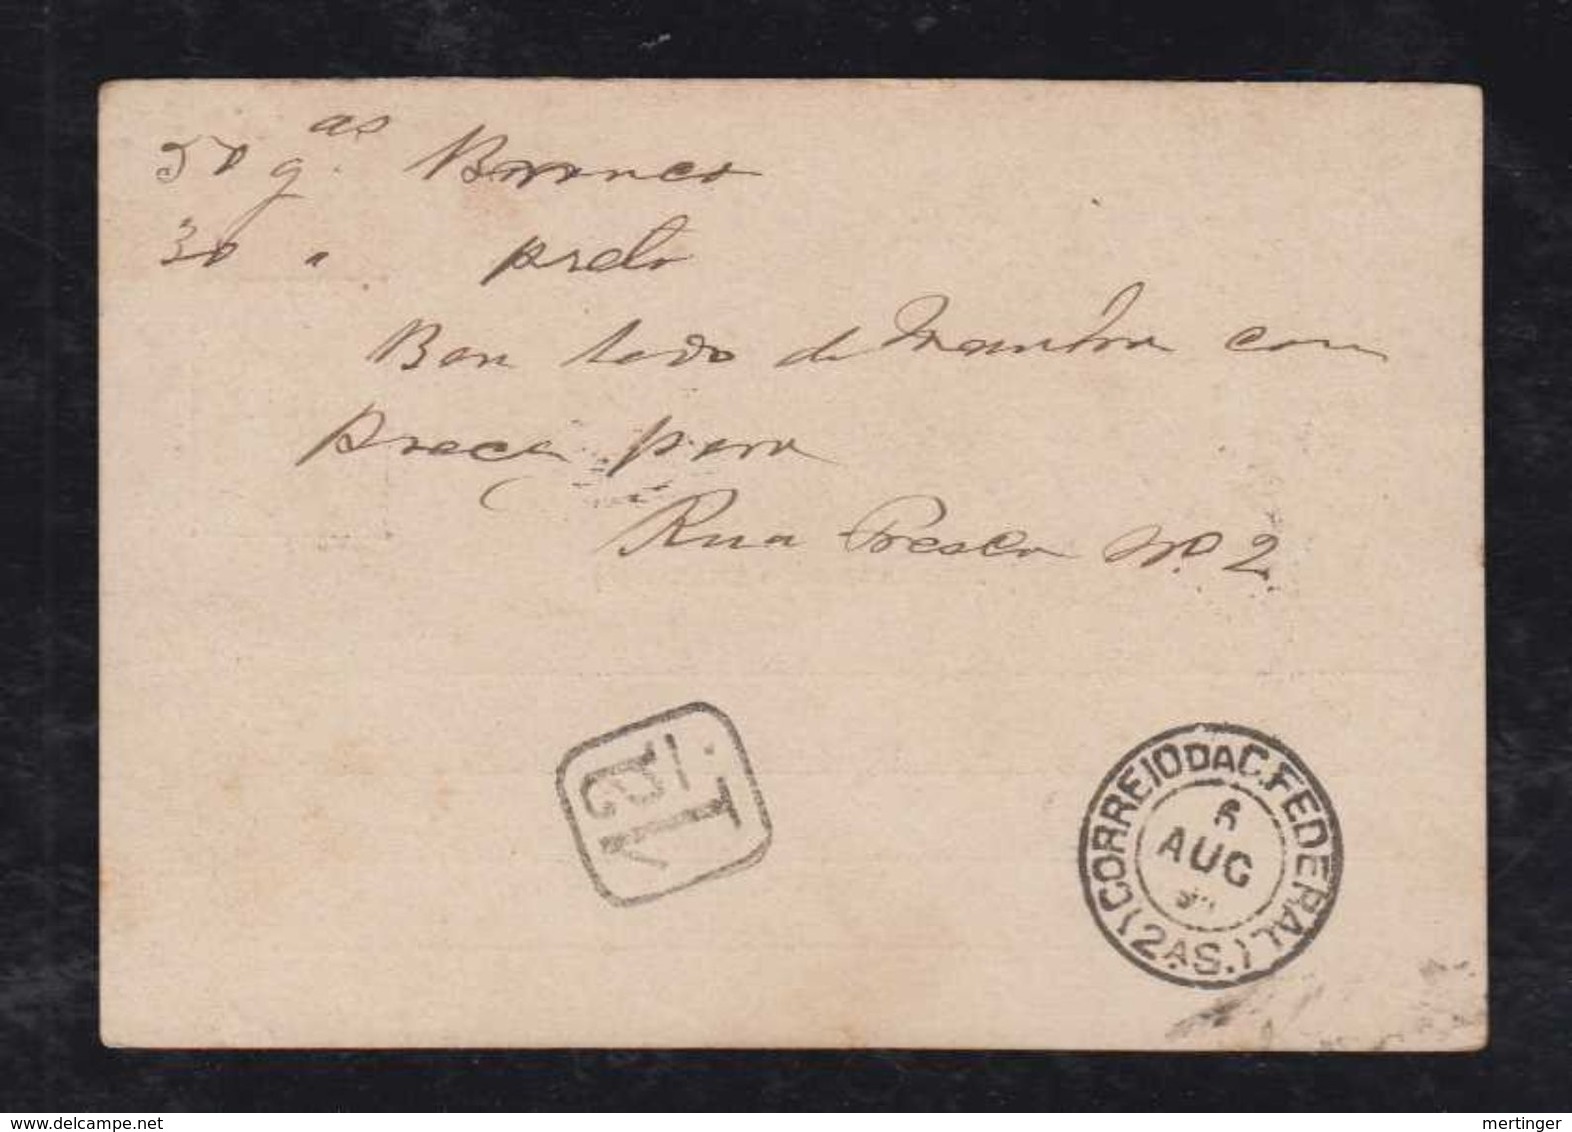 50 g.as Branco
30 " preto
Bon todo de Mantra com
preça para
Rua Fresca No. 2
1a T.
CORREIO DA C. FEDERAL
6
AUG
(2.A S.)
delcampe.net
mertinger